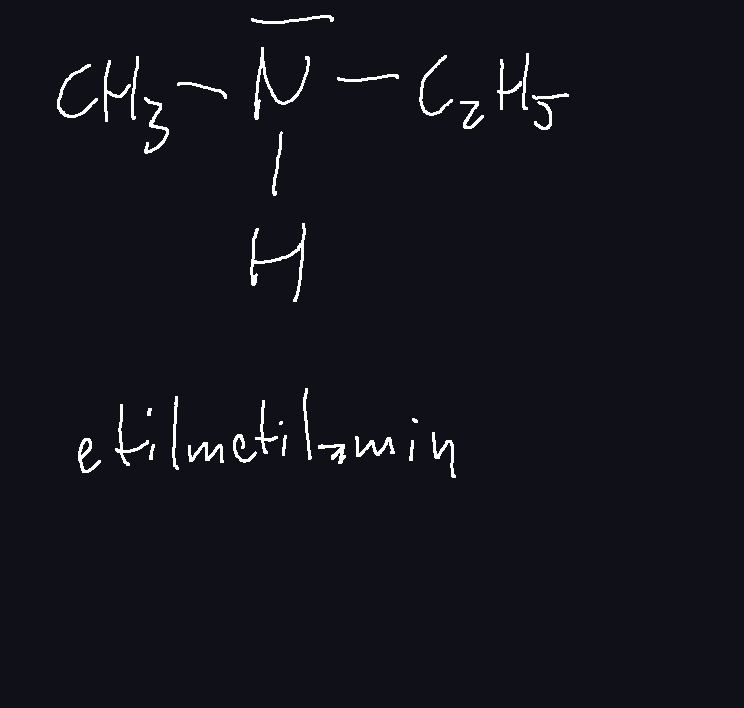 CH₃ - N - C₂H₅
H
etilmetilamin